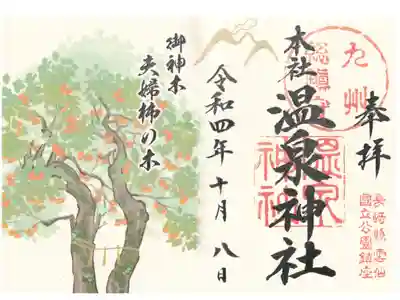 奉拝
長崎縣雲仙
國立公園鎮座
九州
總鎮守
本社
温泉神社
温泉
神社
令和四年十月八日
御神木
夫婦柿の木